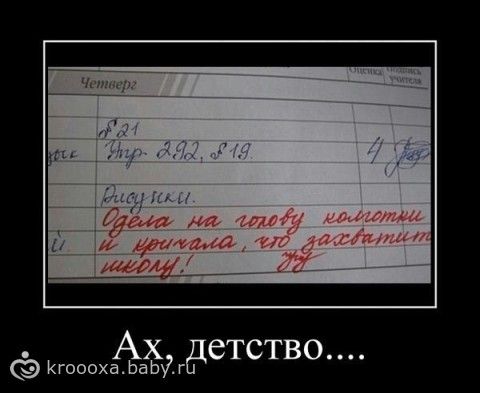 Оценка Подпись учителя
Четверг
§ 21
зык Упр. 292, § 19. 4
Рисунки.
Одела на голову колготки
й. и кричала, что захватит
школу!
Ах, детство....
kroooxa.baby.ru